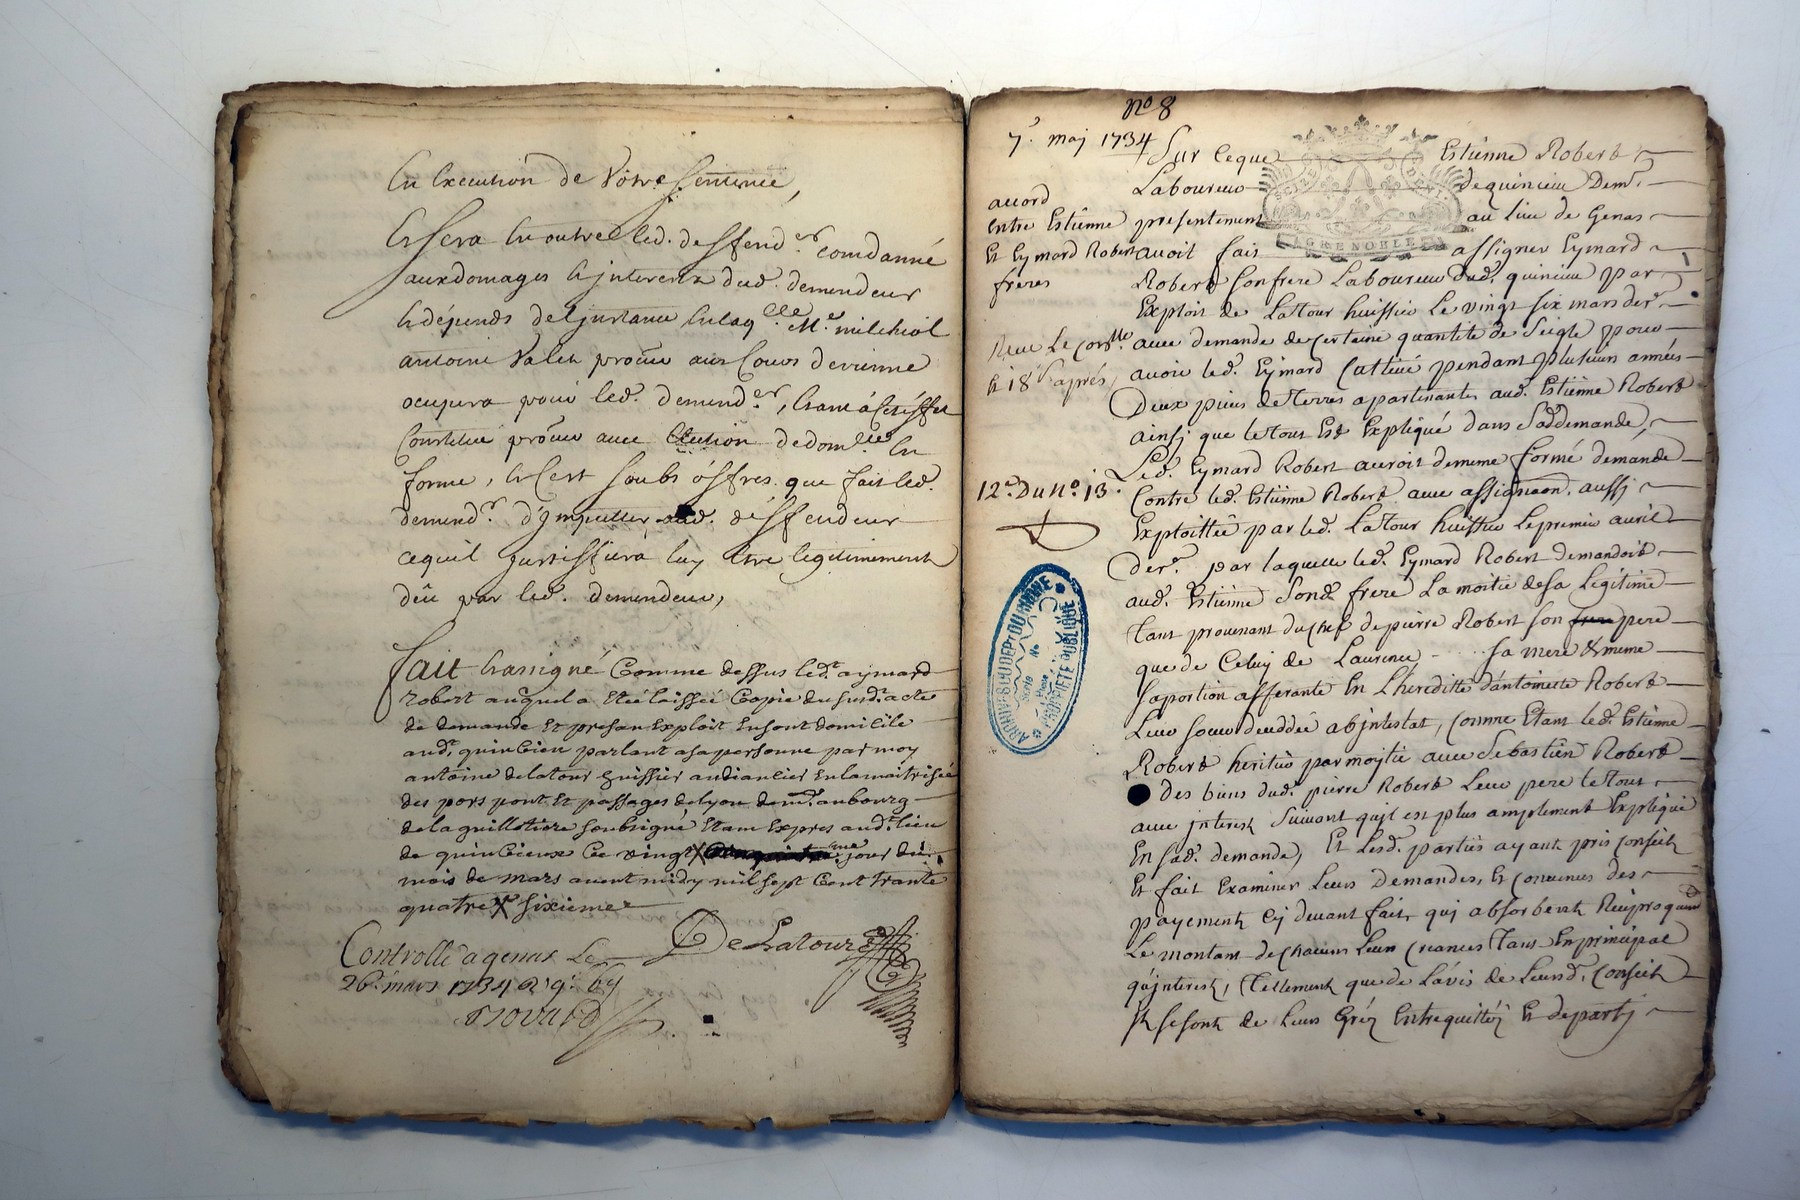 En Execution de Votre Sentence,
Et Sera En outre led. deffend.er comdanné
aux domages Et jnterests dud. demendeur
Et dépends de l'jnstance En laq.lle Me. milchiol
antoine Valet proĉeu aux Cours de vienne
ocupera pour led. demend.er, Etant à cet éffet
Constitué proĉeu avec Election de dom.lle En
forme, Et C'est soubs óffres que fait led.
demend.r d'jmputter aud. défféndeur
ce quil justiffiera luy être legitimement
dêu par led. demendeur,
fait Et assigné Comme dessus led.t aymard
robert auquel a Eté laissé Copie du susd.t acte
de demande Et présan Exploit En sont domicile
aud.t quincieu parlant a sa personne par moy
antoine delatour huissier audiancier En la maitrise
des pors pont Et passages de lyon dem.t au bourg
de la guillotiere soubsigné Etam Expres aud.t lieu
de quincieux Ce vingt jour du
mois de mars avant midy mil sept Cent trante
quatre X sixieme
Controllé a genas Le DeLatour
26.e mars 1734
no 8
7.e maj 1734 Sur Ceque Estienne Robert
Laboureur de quincieu Dem.t
accord
entre Estienne presentement au lieu de Genas
Et Eymard Robert avoit fait assigner Eymard
freres Robert son frere Laboureur dud. quincieu par
GRENOBLE
Exploit de Latour huissier Le vingt six mars der.r
avec demande de Certaine quantité de Seigle pour
avoir led. Eymard Cultivé pendant plusieurs années
Deux pieces de terres apartenants aud. Estienne Robert
ainsj que le tout Est Expliqué dans Sad. demande,
Led. Eymard Robert auroit de meme formé demande
12e Du No. 13. Contre led. Estienne Robert avec assignaon. aussj
Exploittée par led. Latour huissier Le premier avril
Der.r par laquelle led. Eymard Robert demandoit
aud. Estienne Sond. frere La moitie de sa Legitime
tant provenant du chef de pierre Robert son frere pere
que de Celuy de Laurence, .... sa mere & meme
sa portion afferante En L'hereditté d'antoinette Robert
Leur soeur décédée abjntestat, Comme Etant led. Estienne
Robert heritier par moytie avec Sebastien Robert
des biens dud. pierre Robert Leur pere le tout
avec jnterest Suivant qujl est plus amplement Expliqué
En sad. demande, Et Lesd. parties ayant pris Conseil
Et fait Examiner Leurs Demandes, Et Convenus des
payements Cy devant faits quj absorbent Réciproquem.t
Le montant de Chacuns Leurs Creances tant En principal
qu'jnterest, tellement que de L'avis de Leursd. Conseils
jls se sont de Leurs Gréz Entrequittéz Et departj
ARCHIVES DU DEPT DU RHONE
Série
No
Pièce
PROPRIÉTÉ PUBLIQUE